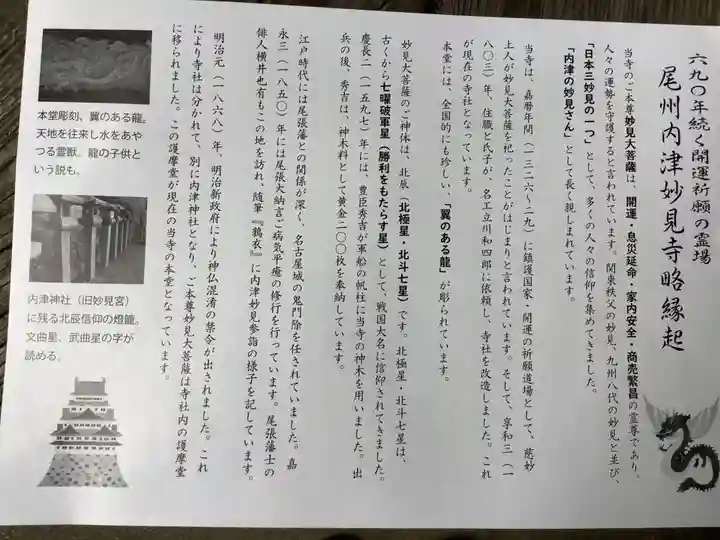 六九〇年続く開運祈願の霊場
尾州内津妙見寺略縁起
当寺のご本尊妙見大菩薩は、開運・息災延命・家内安全・商売繁昌の霊尊であり、
人々の運勢を守護すると言われています。関東秩父の妙見、九州八代の妙見と並び、
「日本三妙見の一つ」として、多くの人々の信仰を集めてきました。
「内津の妙見さん」として長く親しまれています。
当寺は、嘉暦年間(一三二六~二九)に鎮護国家・開運の祈願道場として、慈妙
上人が妙見大菩薩を祀ったことがはじまりと言われています。そして、享和三(一
八〇三)年、住職と氏子が、名工立川和四郎に依頼し、寺社を改造しました。これ
が現在の寺社となっています。
本堂には、全国的にも珍しい、「翼のある龍」が彫られています。
妙見大菩薩のご神体は、北辰(北極星・北斗七星)です。北極星・北斗七星は、
古くから七曜破軍星(勝利をもたらす星)として、戦国大名に信仰されてきました。
慶長二(一五九七)年には、豊臣秀吉が軍船の帆柱に当寺の神木を用いました。出
兵の後、秀吉は、神木料として黄金二〇〇枚を奉納しています。
江戸時代には尾張藩との関係が深く、名古屋城の鬼門除を任されていました。嘉
永三(一八五〇)年には尾張大納言ご病気平癒の修行を行っています。尾張藩士の
俳人横井也有もこの地を訪れ、随筆『鶉衣』に内津妙見参詣の様子を記しています。
明治元(一八六八)年、明治新政府により神仏混淆の禁令が出されました。これ
により寺社は分かれて、別に内津神社となり、ご本尊妙見大菩薩は寺社内の護摩堂
に移られました。この護摩堂が現在の当寺の本堂となっています。
本堂彫刻、翼のある龍。
天地を往来し水をあや
つる霊獣。龍の子供と
いう説も。
内津神社(旧妙見宮)
に残る北辰信仰の燈籠。
文曲星、武曲星の字が
読める。